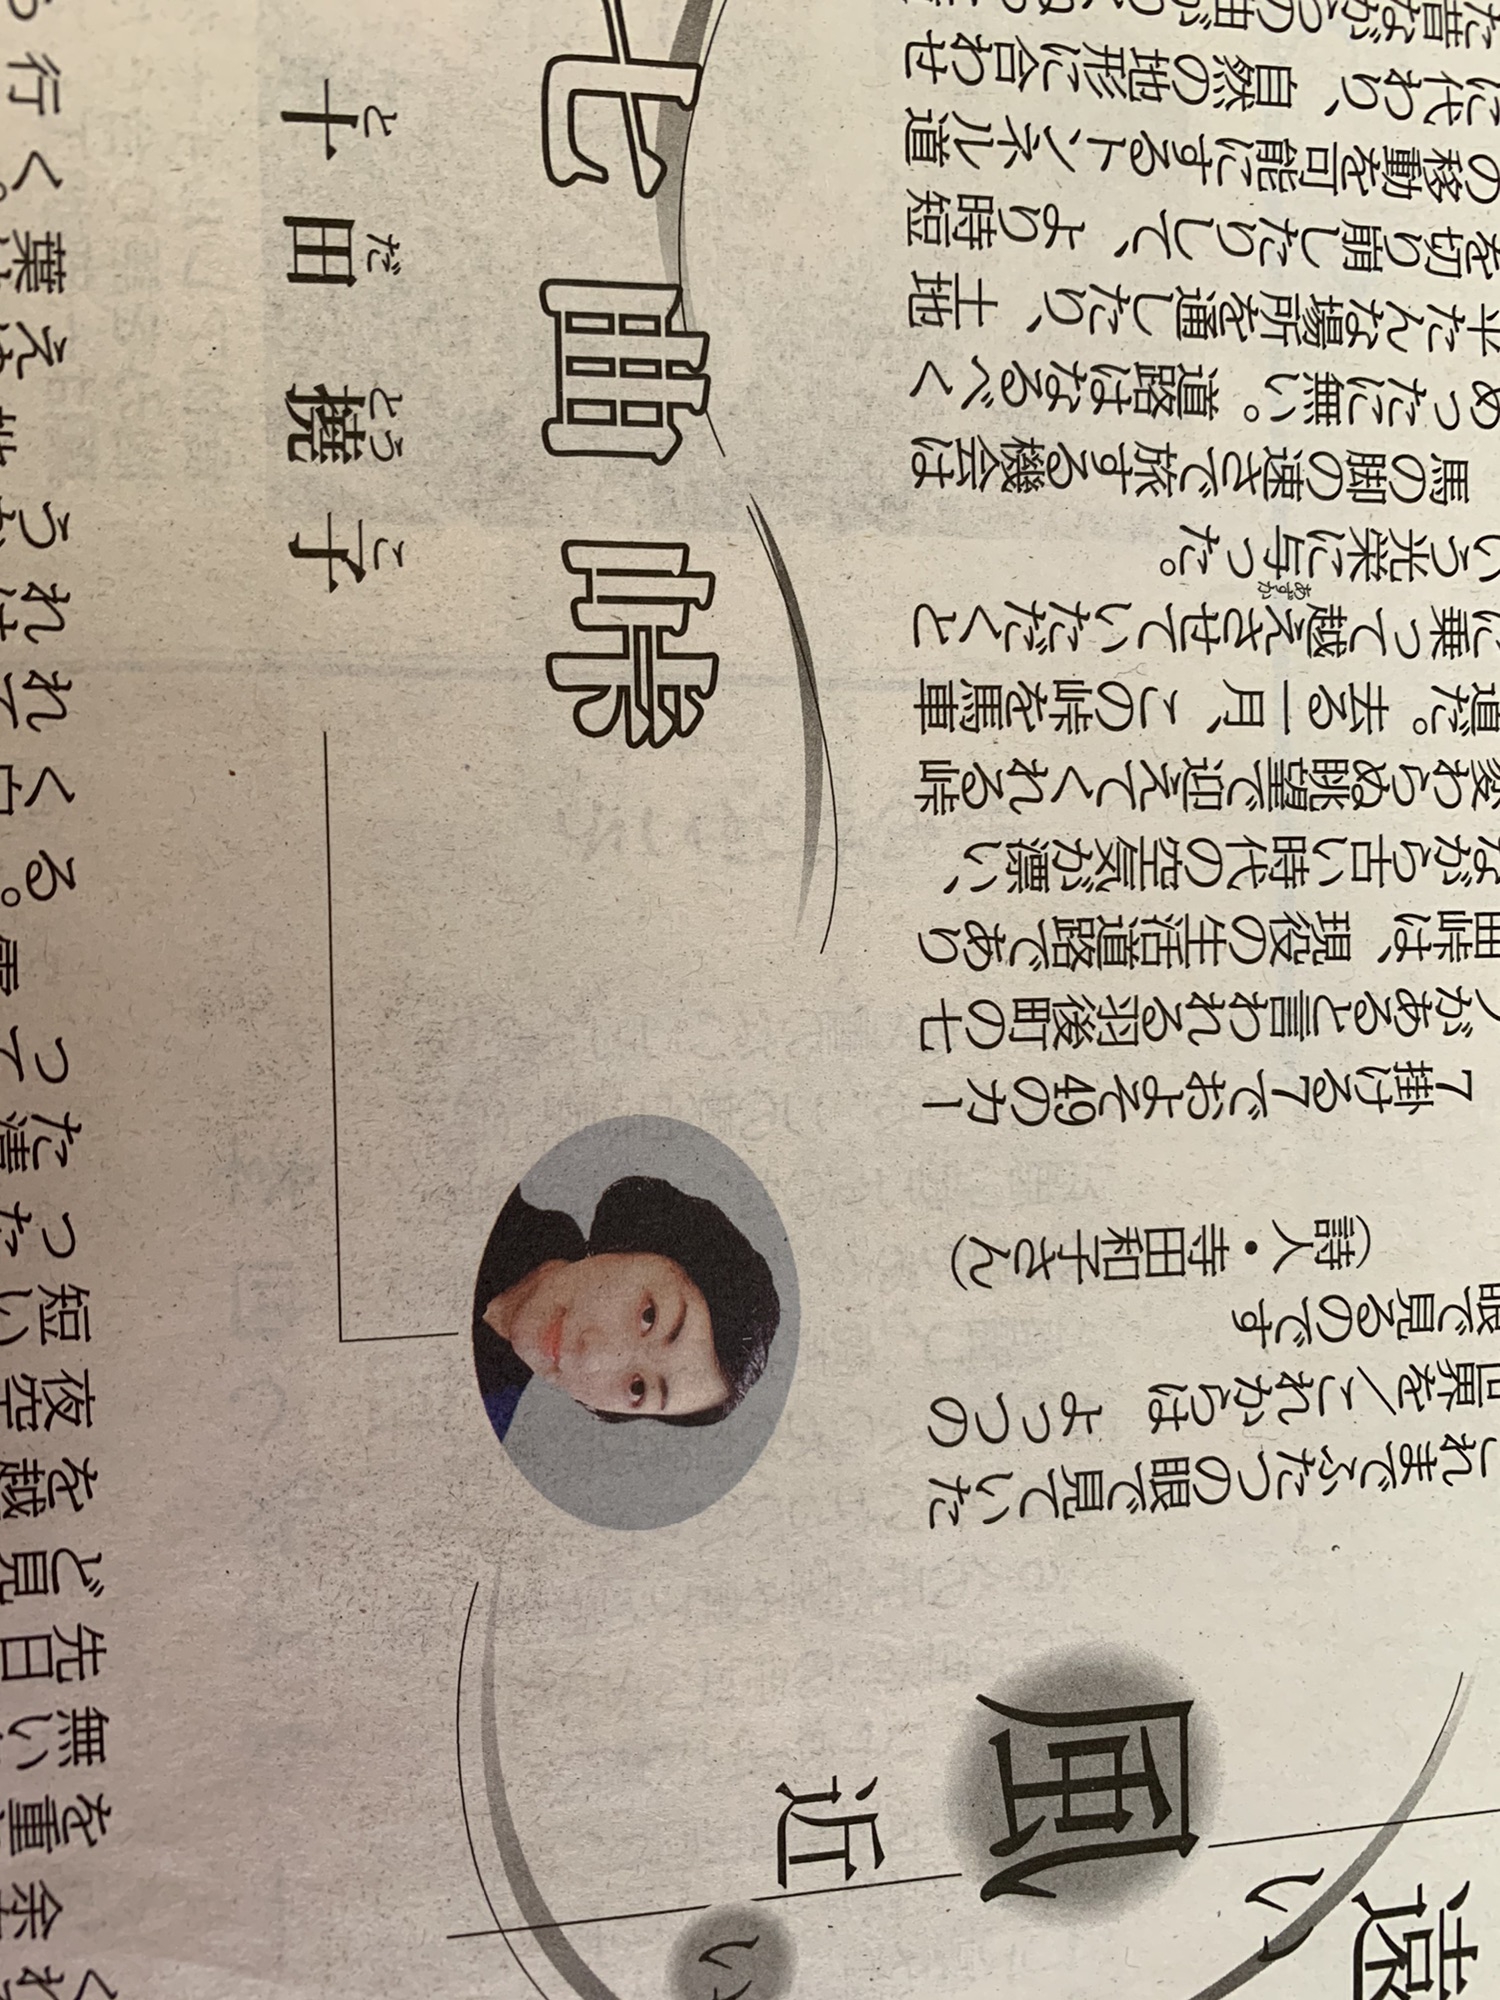 遠い
風
近い
これまでふたつの眼で見ていた
世界を/これからは よっつの
眼で見るのです
(詩人・寺田和子さん)
7掛ける7でおよそ49のカー
があると言われる羽後町の七
曲峠は、現役の生活道路であり
ながら古い時代の空気が漂い、
変わらぬ眺望で迎えてくれる峠
道だ。去る一月、この峠を馬車
に乗って越えさせていただくと
いう光栄に与った。
あずか
馬の脚の速さで旅する機会は
めったに無い。道路はなるべく
平たんな場所を通したり、土地
を切り崩したりして、より時短
の移動を可能にするトンネル道
に代わり、自然の地形に合わせ
七曲峠
と だ とう こ
十田撓子